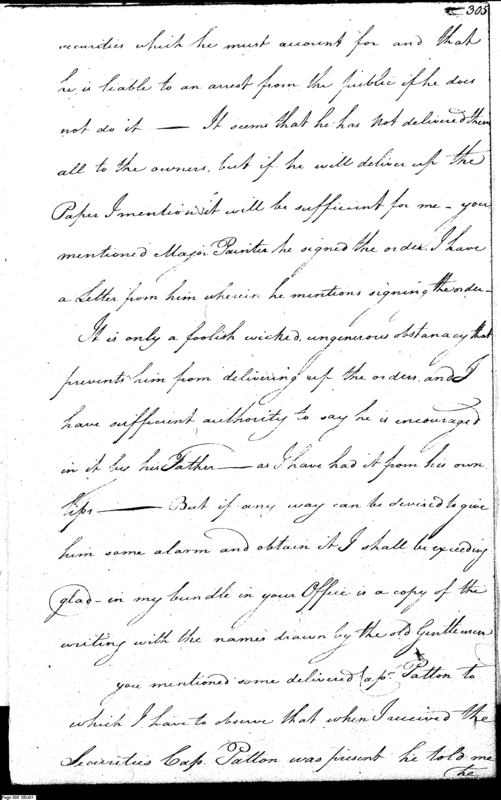 305
securities which he must account for and that
he is liable to an arrest from the public if he does
not do it — It seems that he has not delivered them
all to the owners, but if he will deliver up the
Paper I mention it will be sufficient for me – you
mentioned Major Painter he signed the order. I have
a Letter from him wherein he mentions signing the order –
It is only a foolish wicked, ungenerous obstanacy that
prevents him from delivering up the orders, and I
have sufficient authority to say he is encouraged
in it by his Father — as I have had it from his own
lips — But if any way can be devised to give
him some alarm and obtain it I shall be exceeding
glad – in my bundle in your Office is a copy of the
writing with the names drawn by the old Gentleman
you mentioned some delivered Cap. Patton to
which I have to observe that when I received the
Securities Cap. Patton was present he told me
the